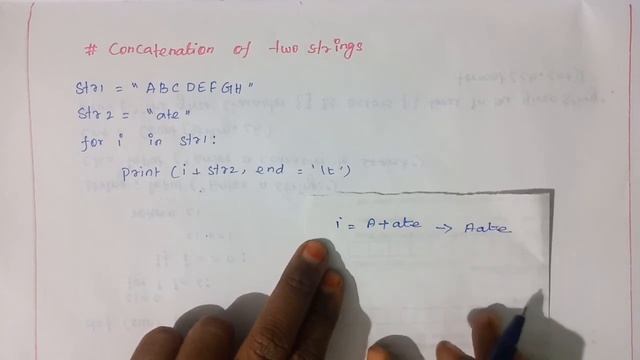 # Concatenation of two strings
Str1 = "ABCDEFGH"
Str2 = "ate"
for i in str1:
print (i + str2, end = '\t')
i = A+ate → Aate